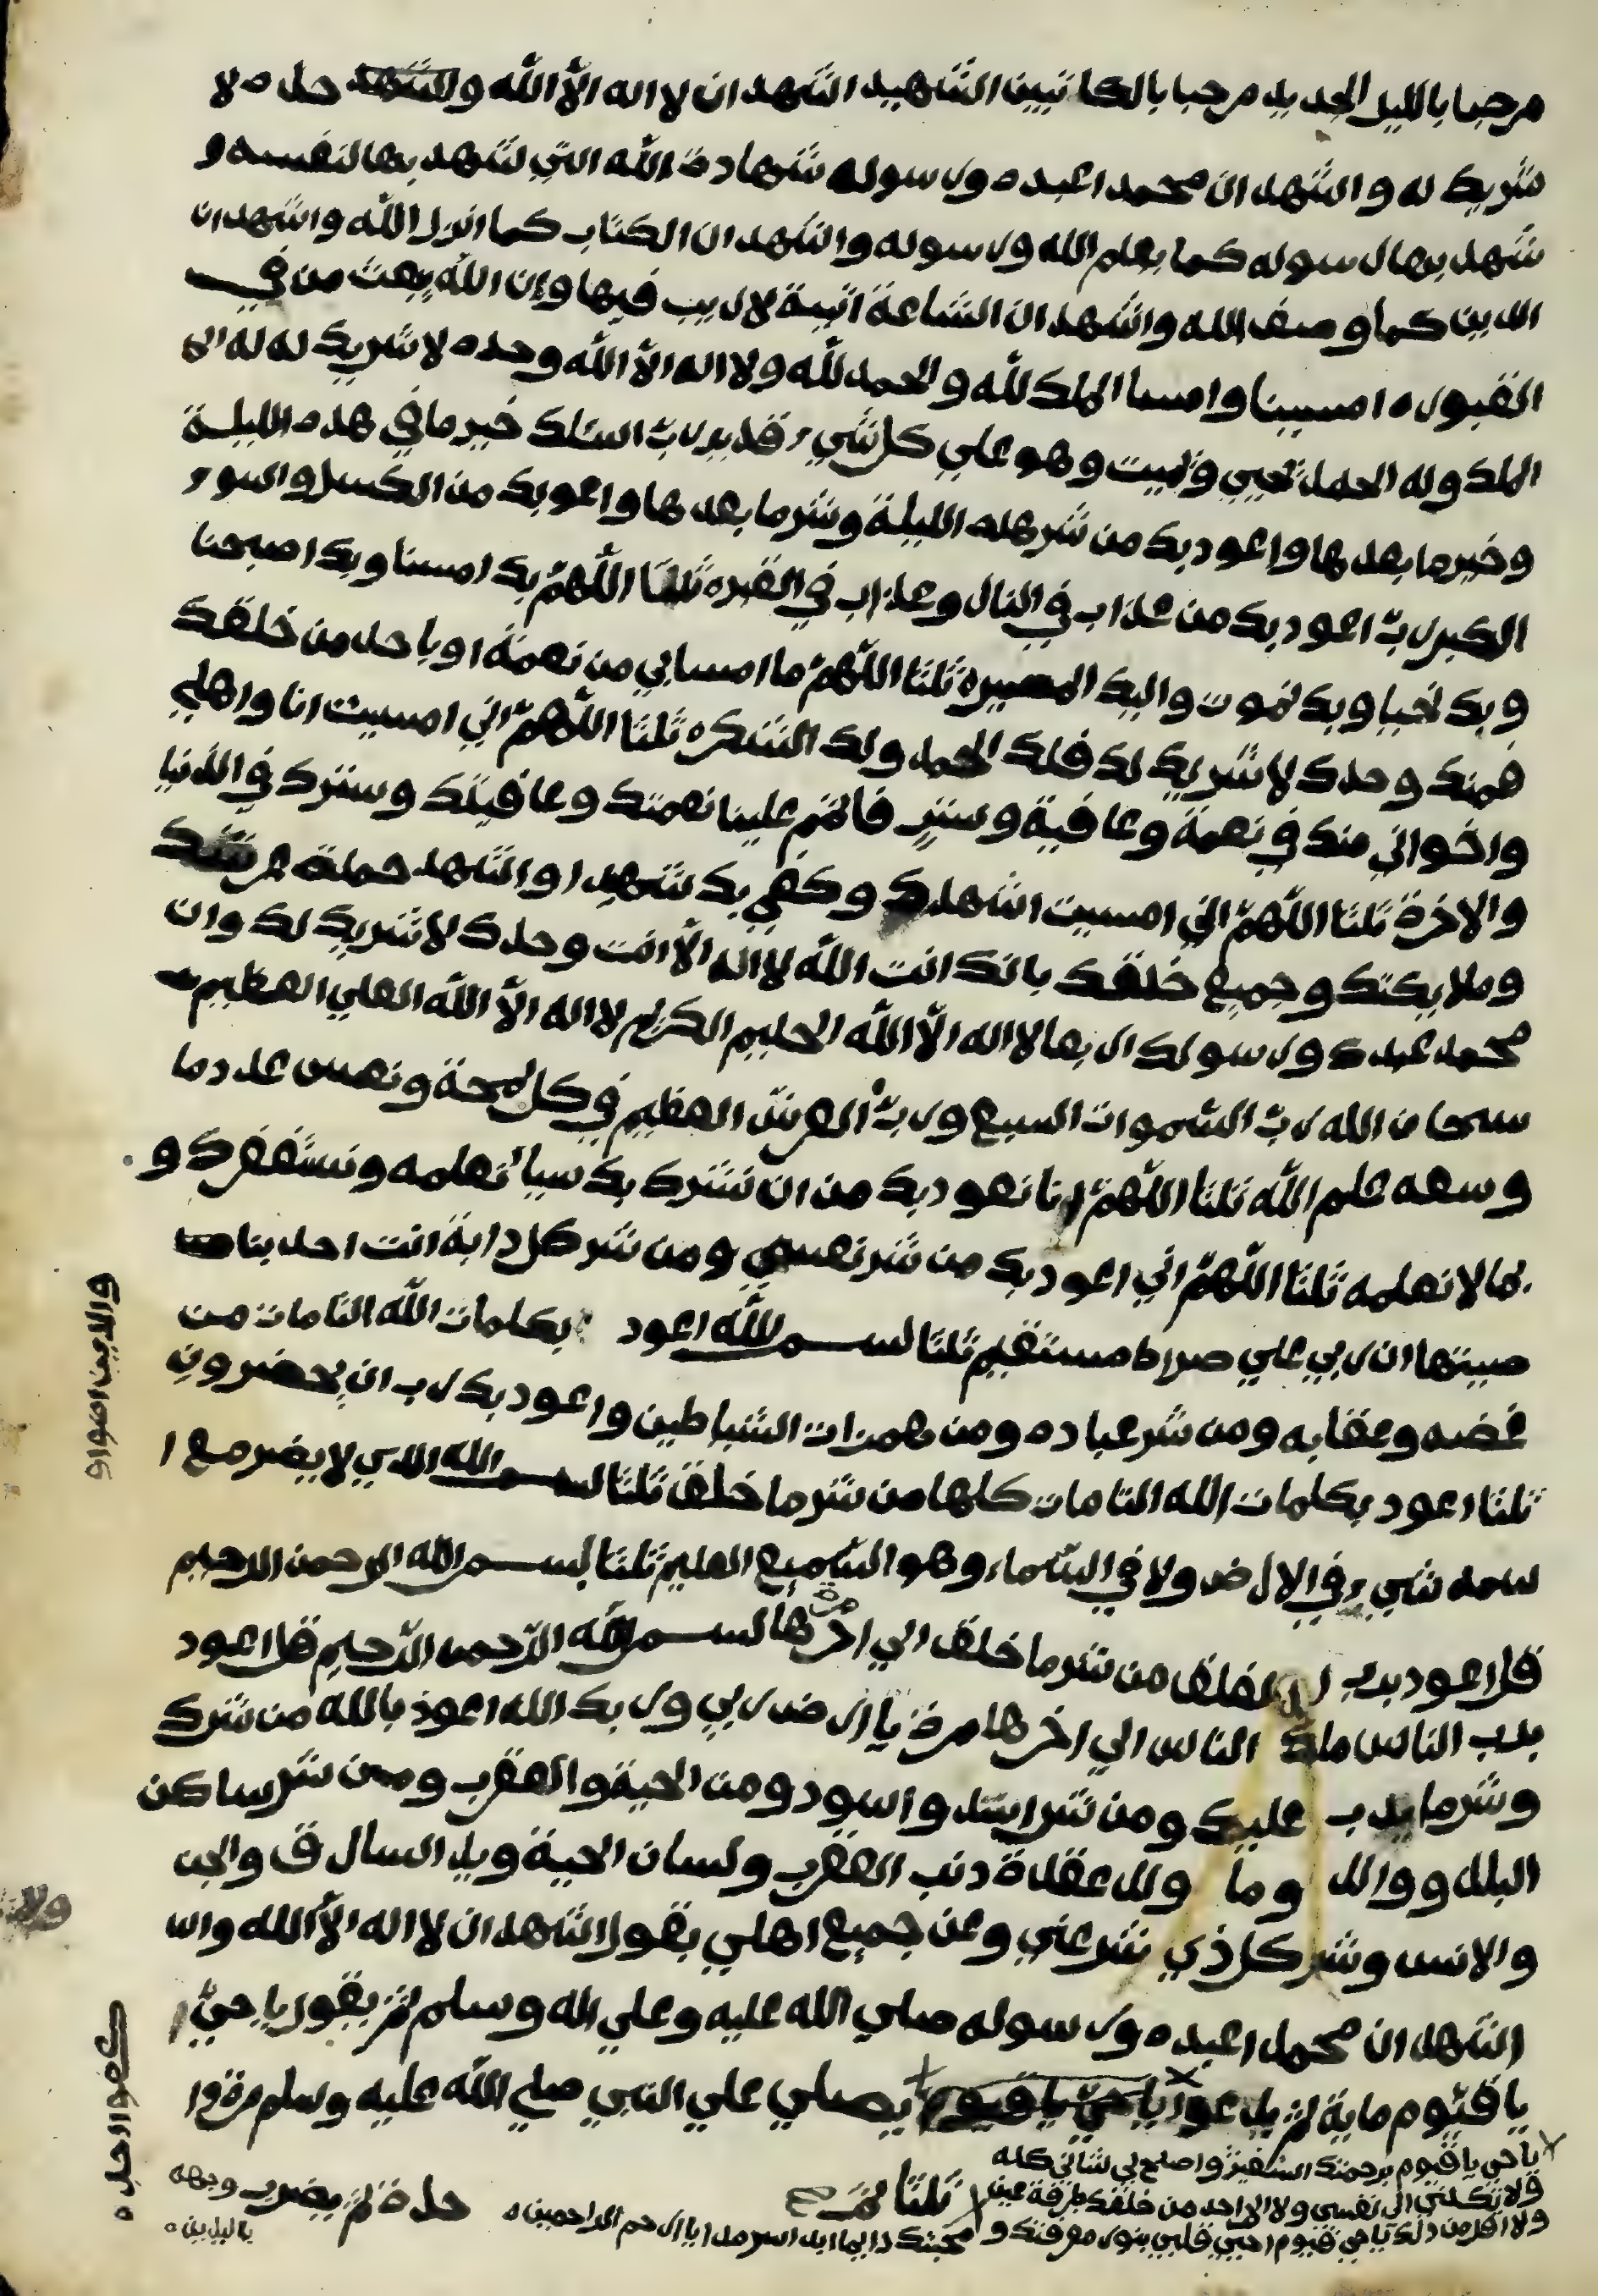 مرحبا بالليل الجديد مرحبا بالكاتبين الشهيد اشهد ان لا اله الا الله وحده لا
شريك له واشهد ان محمدا عبده ورسوله شهادة الله التي شهد بها لنفسه و
شهد بها رسوله كما يعلم الله ورسوله واشهد ان الكتاب كما انزل الله واشهد ان
الدين كما وصف الله واشهد ان الساعة اتية لا ريب فيها وان الله يبعث من في
القبور ه امسينا وامسا الملك لله والحمد لله ولا اله الا الله وحده لا شريك له له
الملك وله الحمد يحيي ويميت وهو علي كل شيء قدير رب اسئلك خير ما في هذه الليلة
وخير ما بعدها واعوذ بك من شر هذه الليلة وشر ما بعدها واعوذ بك من الكسل والسوء
الكبر رب اعوذ بك من عذاب في النار وعذاب في القبر ه ثلثا اللهم بك امسنا وبك اصبحنا
وبك نحيا وبك نموت واليك المصير ه ثلثا اللهم ما امسا بي من نعمة او باحد من خلقك
فمنك وحدك لا شريك لك فلك الحمد ولك الشكر ه ثلثا اللهم اني امسيت انا واهلي
واخواني منك في نعمة وعافية وستر فاتمم علينا نعمتك وعافيتك وسترك في الدنيا
والاخرة ثلثا اللهم اني امسيت اشهدك وكفي بك شهيدا واشهد حملة عرشك
وملايكتك وجميع خلقك بانك انت الله لا اله الا انت وحدك لا شريك لك وان
محمد عبدك ورسولك اربعا لا اله الا الله الحليم الكريم لا اله الا الله العلي العظيم
سبحان الله رب السموات السبع ورب العرش العظيم في كل لمحة ونفس عدد ما
وسعه علم الله ثلثا اللهم انا نعوذ بك من ان نشرك بك شيا نعلمه ونستغفرك و
لما لا نعلمه ثلثا اللهم اني اعوذ بك من شر نفسي ومن شر كل دابة انت اخذ بناصـ
صيتها ان ربي علي صراط مستقيم ثلثا بسم الله اعوذ بكلمات الله التامات من
غضبه وعقابه ومن شر عباده ومن همزات الشياطين واعوذ بك رب ان يحضرون
ثلثا اعوذ بكلمات الله التامات كلها من شر ما خلق ثلثا بسم الله الذي لا يضر مع ا
سمه شيء في الارض ولا في السماء وهو السميع العليم ثلثا بسم الله الرحمن الرحيم
قل اعوذ برب الفلق من شر ما خلق الي اخرها مرة بسم الله الرحمن الرحيم قل اعوذ
برب الناس ملك الناس الي اخرها مرة يا ارض ربي وربك الله اعوذ بالله من شرك
وشر ما يدب عليك ومن شر اسد واسود ومن الحية والعقرب ومن شر ساكن
البلد ووالد وما ولد عقدة ذنب العقرب ولسان الحية ويد السارق والجن
والانس وشر كل ذي شر عني وعن جميع اهلي بقول اشهد ان لا اله الا الله وا
اشهد ان محمدا عبده ورسوله صلي الله عليه وعلي اله وسلم ثم يقول يا حي
يا قيوم ماية ثم يدعوا يا حي يا قيوم يصلي علي النبي صلي الله عليه وسلم مرة
يا حي يا قيوم برحمتك استغيث واصلح لي شاني كله
ولا تكلني الي نفسي ولا الي احد من خلقك طرفة عين
ولا اقل من ذلك يا حي قيوم احيي قلبي بنور معرفتك و
محبتك دايما ابدا سرمدا يا ارحم الراحمين ه
ثلثا
خده ثم يضرب وجهه
باليدين ه
كفوا احد ه